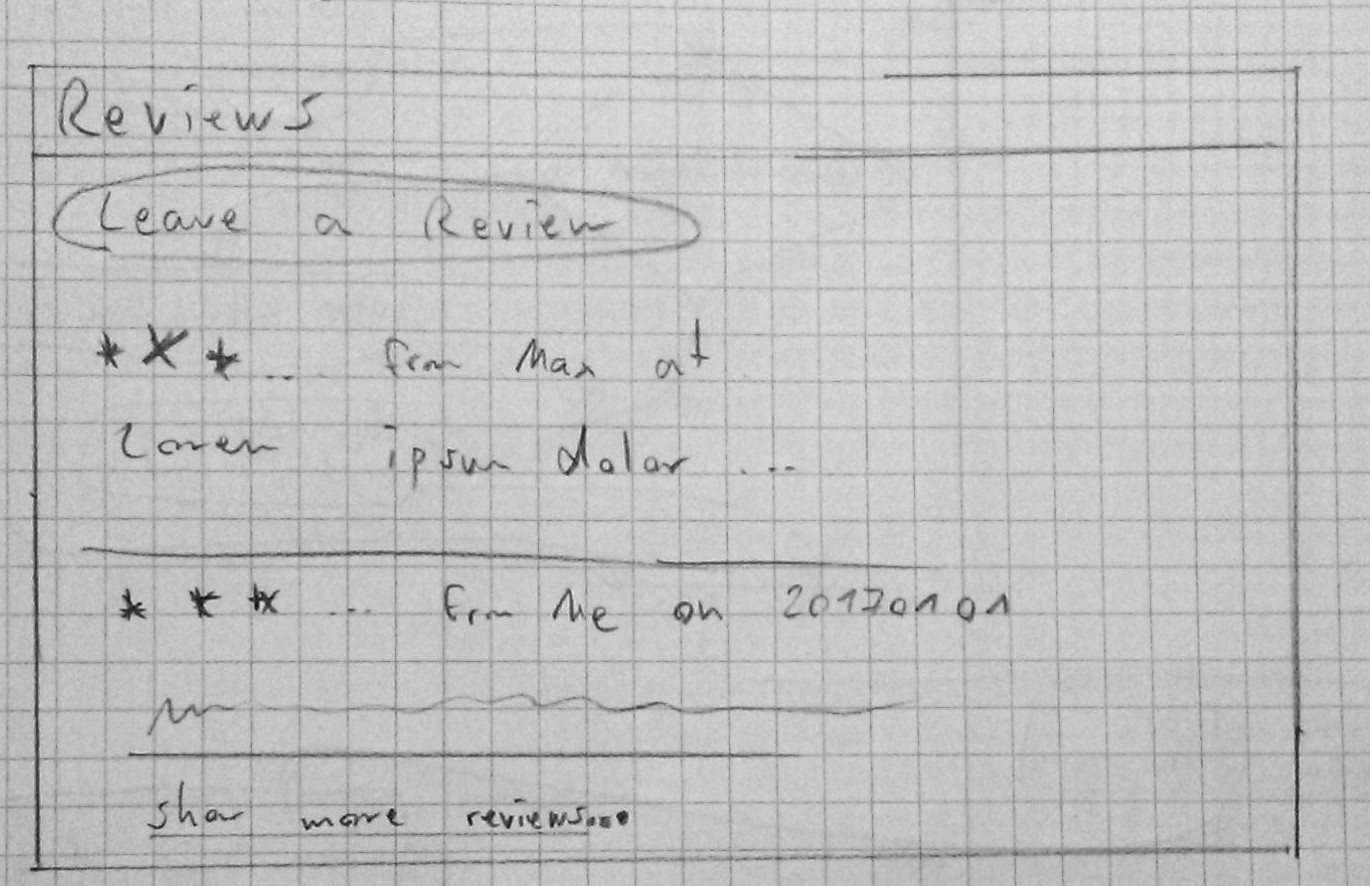 Reviews
Leave a Review
* * * ... from Max at
Lorem ipsum dolor ...
* * * ... from Me on 20170101
show more reviews...